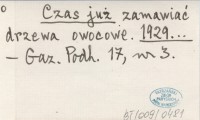 Czas już zamawiać
drzewa owocowe. 1929...
– Gaz. Podh. 17, nr 3.
BT/009/0481